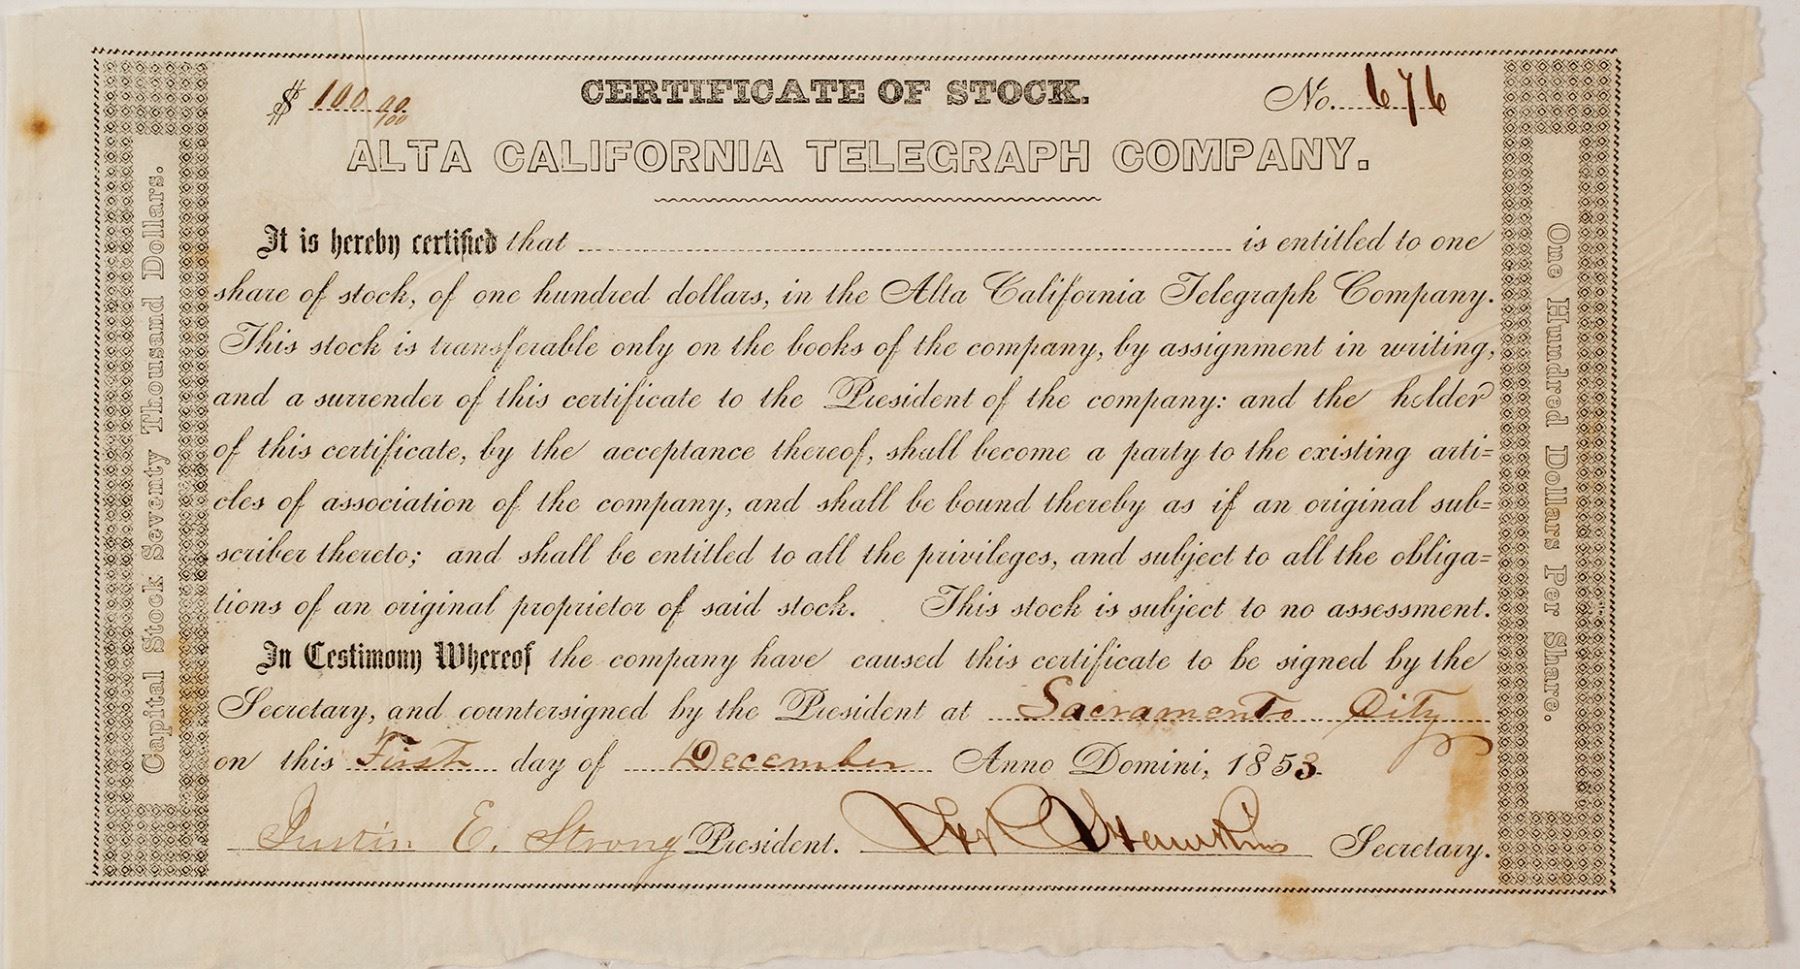 $ 100 00/100
CERTIFICATE OF STOCK.
No. 676
ALTA CALIFORNIA TELEGRAPH COMPANY.
Capital Stock Seventy Thousand Dollars.
It is hereby certified that is entitled to one
share of stock, of one hundred dollars, in the Alta California Telegraph Company.
This stock is transferable only on the books of the company, by assignment in writing,
and a surrender of this certificate to the President of the company: and the holder
of this certificate, by the acceptance thereof, shall become a party to the existing arti=
cles of association of the company, and shall be bound thereby as if an original sub=
scriber thereto; and shall be entitled to all the privileges, and subject to all the obliga=
tions of an original proprietor of said stock. This stock is subject to no assessment.
In Testimony Whereof the company have caused this certificate to be signed by the
Secretary, and countersigned by the President at Sacramento City
on this First day of December Anno Domini, 1853.
Justin E. Strong President. Hawkins Secretary.
One Hundred Dollars Per Share.